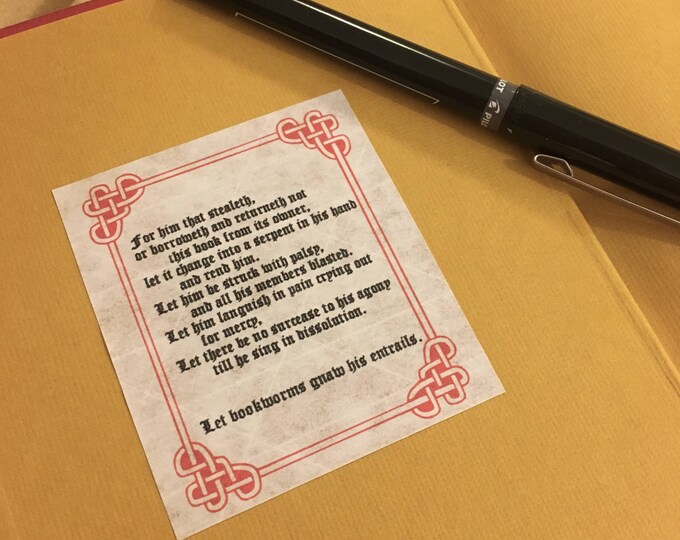 For him that stealeth,
or borroweth and returneth not
this book from its owner,
let it change into a serpent in his hand
and rend him.
Let him be struck with palsy,
and all his members blasted.
Let him languish in pain crying out
for mercy,
Let there be no surcease to his agony
till he sing in dissolution.
Let bookworms gnaw his entrails.